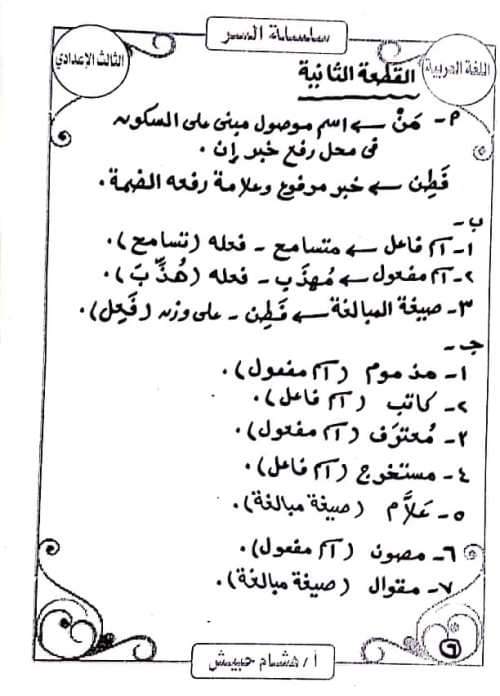 سلسلة السر
اللغة العربية
الثالث الإعدادي
القطعة الثانية
م- مَنْ ← اسم موصول مبنى على السكون
فى محل رفع خبر إن .
فَطِن ← خبر مرفوع وعلامة رفعه الضمة .
ب -
١- اسم فاعل ← متسامح - فعله (تسامح) .
٢- اسم مفعول ← مُهذَّب - فعله (هُذِّبَ) .
٣- صيغة المبالغة ← فَطِن - على وزن (فَعِل) .
جـ -
١- مذموم (اسم مفعول) .
٢- كاتب (اسم فاعل) .
٣- مُعترَف (اسم مفعول) .
٤- مستخرج (اسم فاعل) .
٥- علَّام (صيغة مبالغة) .
٦- مصون (اسم مفعول) .
٧- مقوال (صيغة مبالغة) .
أ/ هشام حبيش
٦